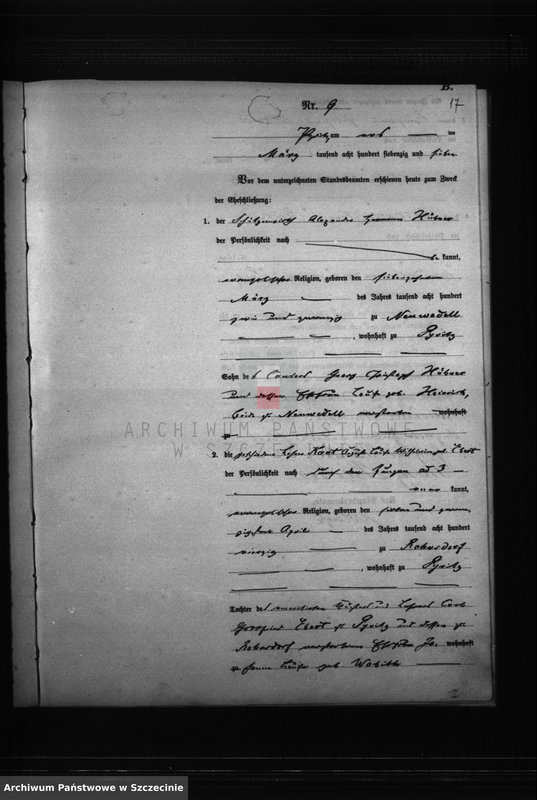 B.
Nr. 9
17
Pyritz am
März tausend acht hundert siebenzig und sieben
Vor dem unterzeichneten Standesbeamten erschienen heute zum Zweck
der Eheschließung:
1. der Alexander Hermann Hübner
der Persönlichkeit nach
be kannt,
evangelischer Religion, geboren den siebenzehnten
März des Jahres tausend acht hundert
zwei und zwanzig zu Neuwedell
, wohnhaft zu Pyritz
Sohn des Cantors Georg Christoph Hübner
und dessen Ehefrau Louise geb. Heinrich,
beide zu Neuwedell verstorben wohnhaft
zu
ARCHIWUM PAŃSTWOWE
W SZCZECINIE
2. die geschiedene Auguste Louise Wilhelmine geb. Ebert
der Persönlichkeit nach durch den Zeugen ad 3
aner kannt,
evangelischer Religion, geboren den sieben und zwan-
zigsten April des Jahres tausend acht hundert
vierzig zu Rohrsdorf
, wohnhaft zu Pyritz
Tochter des Küsters und Lehrers Carl
Gottfried Ebert zu Pyritz und dessen zu
Rohrsdorf verstorbenen Ehefrau Jo- wohnhaft
hanna Louise geb.
Archiwum Państwowe w Szczecinie